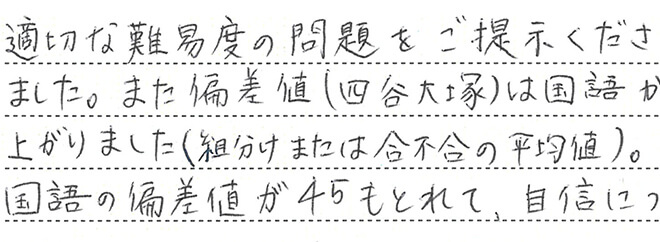 適切な難易度の問題をご提示くださ
ました。また偏差値(四谷大塚)は国語が
上がりました(組分けまたは合不合の平均値)。
国語の偏差値が45もとれて、自信につ